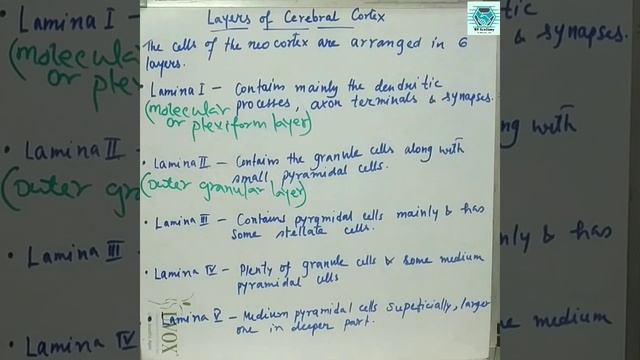 Layers of Cerebral Cortex
The cells of the neocortex are arranged in 6
layers.
Lamina I – Contains mainly the dendritic
(molecular processes, axon terminals & synapses.
or plexiform layer)
• Lamina II – Contains the granule cells along with
small pyramidal cells.
(outer granular layer)
• Lamina III – Contains pyramidal cells mainly & has
some stellate cells.
• Lamina IV – Plenty of granule cells & some medium
pyramidal cells
• Lamina V – Medium pyramidal cells supeficially, larger
one in deeper part.